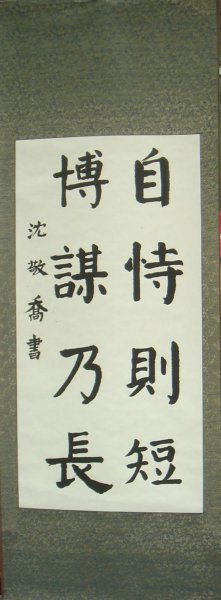 自恃則短
博謀乃長
沈敬喬書